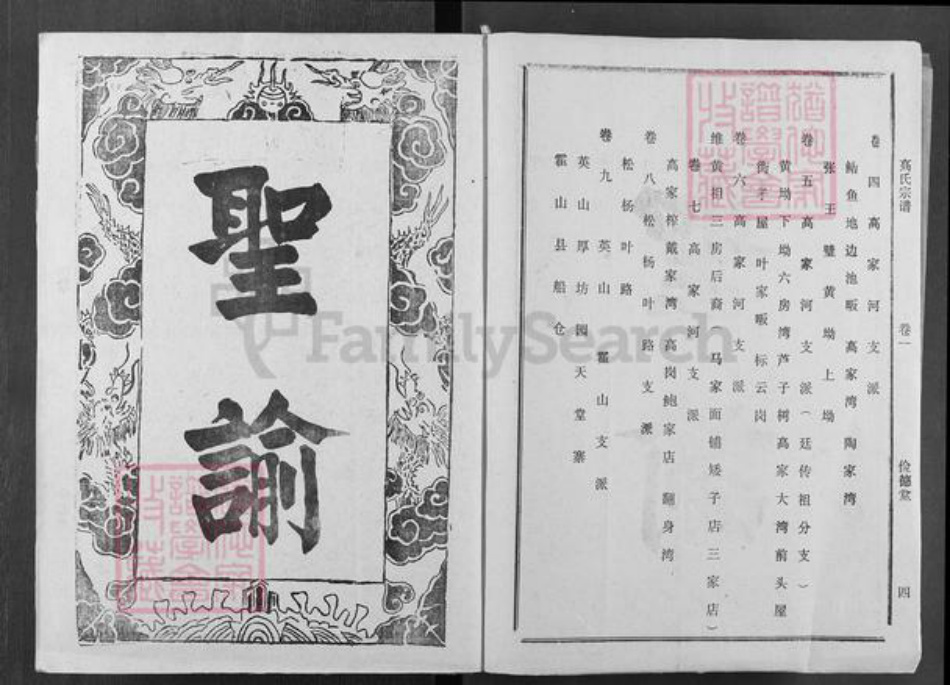 高氏宗谱 卷一 俭德堂 四
卷四高家河支派
鲇鱼地边池畈高家湾陶家湾
张王璧黄坳上坳
卷五高家河支派(廷传祖分支)
黄坳下坳六房湾芦子树高家大湾前头屋
屋叶家畈标云岗
卷六高家河支派
维黄相三房后裔(马家面铺矮子店三家店)
卷七高家河支派
高家榨戴家湾高岗鲍家店翻身湾
卷八松杨叶路支派
松杨叶路
卷九英山霍山支派
英山厚坊园天堂寨
霍山县船仓
聖諭
FamilySearch